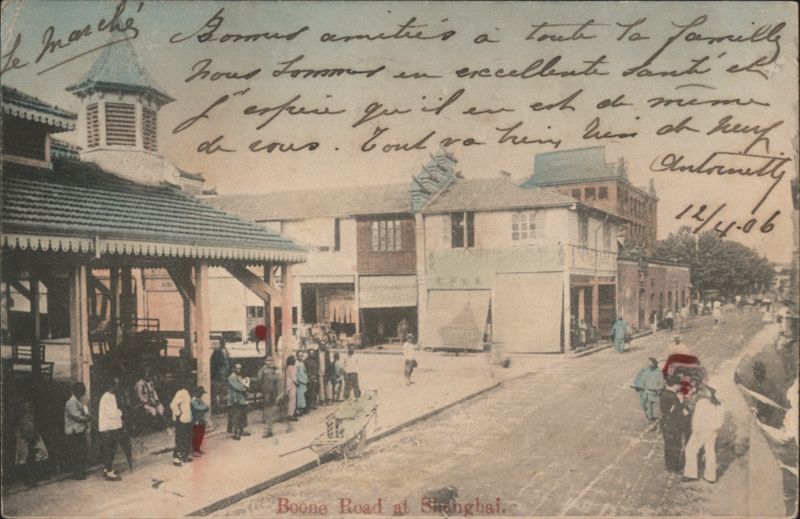 Le marché
Bonnes amitiés à toute la famille
nous sommes en excellente santé et
J'espère qu'il en est de même
de vous. Tout va bien rien de neuf
Antoinette
12/4.06
Boone Road at Shanghai.